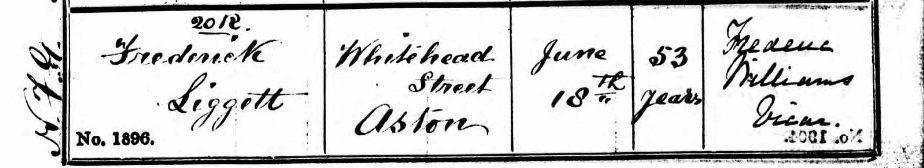 2012.
Frederick
Liggett
No. 1896.
Whitehead
Street
Aston
June
18th
53
years
Frederic
Williams
Vicar.